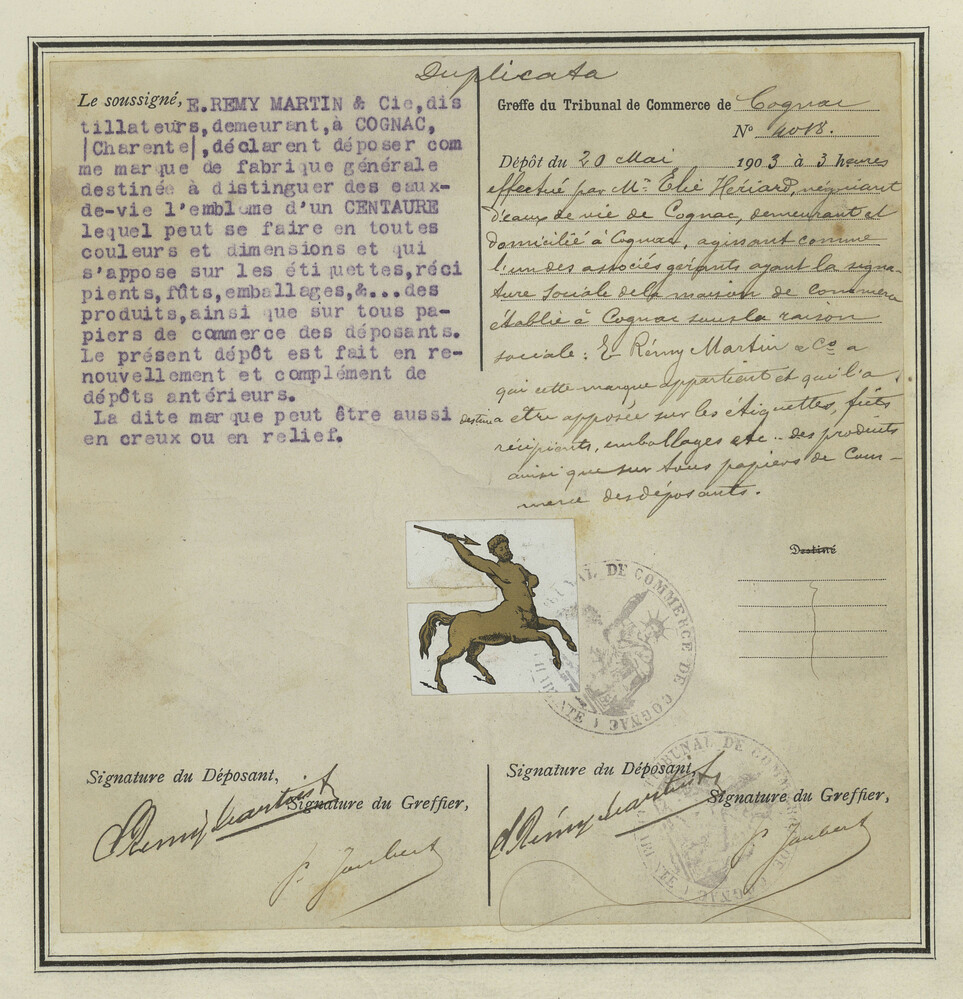 Duplicata
Le soussigné, E.REMY MARTIN & Cie,dis
tillateurs,demeurant,à COGNAC,
|Charente|,déclarent déposer com
me marque de fabrique générale
destinée à distinguer des eaux-
de-vie l'emblème d'un CENTAURE
lequel peut se faire en toutes
couleurs et dimensions et qui
s'appose sur les étiquettes,réci
pients,fûts,emballages,&...des
produits,ainsi que sur tous pa-
piers de commerce des déposants.
Le présent dépôt est fait en re-
nouvellement et complément de
dépôts antérieurs.
La dite marque peut être aussi
en creux ou en relief.
Greffe du Tribunal de Commerce de Cognac
N° 4018.
Dépôt du 20 Mai 1903 à 3 heures
effectué par Mr Elie Hériard, négociant
d'eaux de vie de Cognac, demeurant et
domicilié à Cognac, agissant comme
l'un des associés gérants ayant la signa-
ture sociale de la maison de commerce
établie à Cognac sous la raison
sociale: E. Rémy Martin & Co a
qui cette marque appartient et qui l'a
destinée a etre apposée sur les étiquettes, fûts
récipients, emballages etc.. des produits
ainsi que sur tous papiers de Com-
merce des déposants.
Destiné
TRIBUNAL DE COMMERCE DE COGNAC (CHARENTE)
Signature du Déposant,
E Remy Martin & Co
Signature du Greffier,
P. Joubert
Signature du Déposant,
E Rémy Martin & Co
Signature du Greffier,
P. Joubert
TRIBUNAL DE COMMERCE DE COGNAC (CHARENTE)